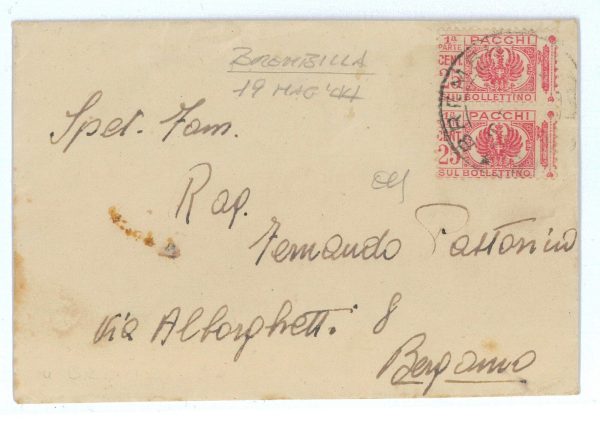 BREMBILLA
19 MAG '44
1ª PARTE PACCHI
CENT 25 SUL BOLLETTINO
PACCHI
25 SUL BOLLETTINO
BREMBI
Spet. Fam.
Rag.
Fernando Pastorino
Via Alborghetti 8
Bergamo